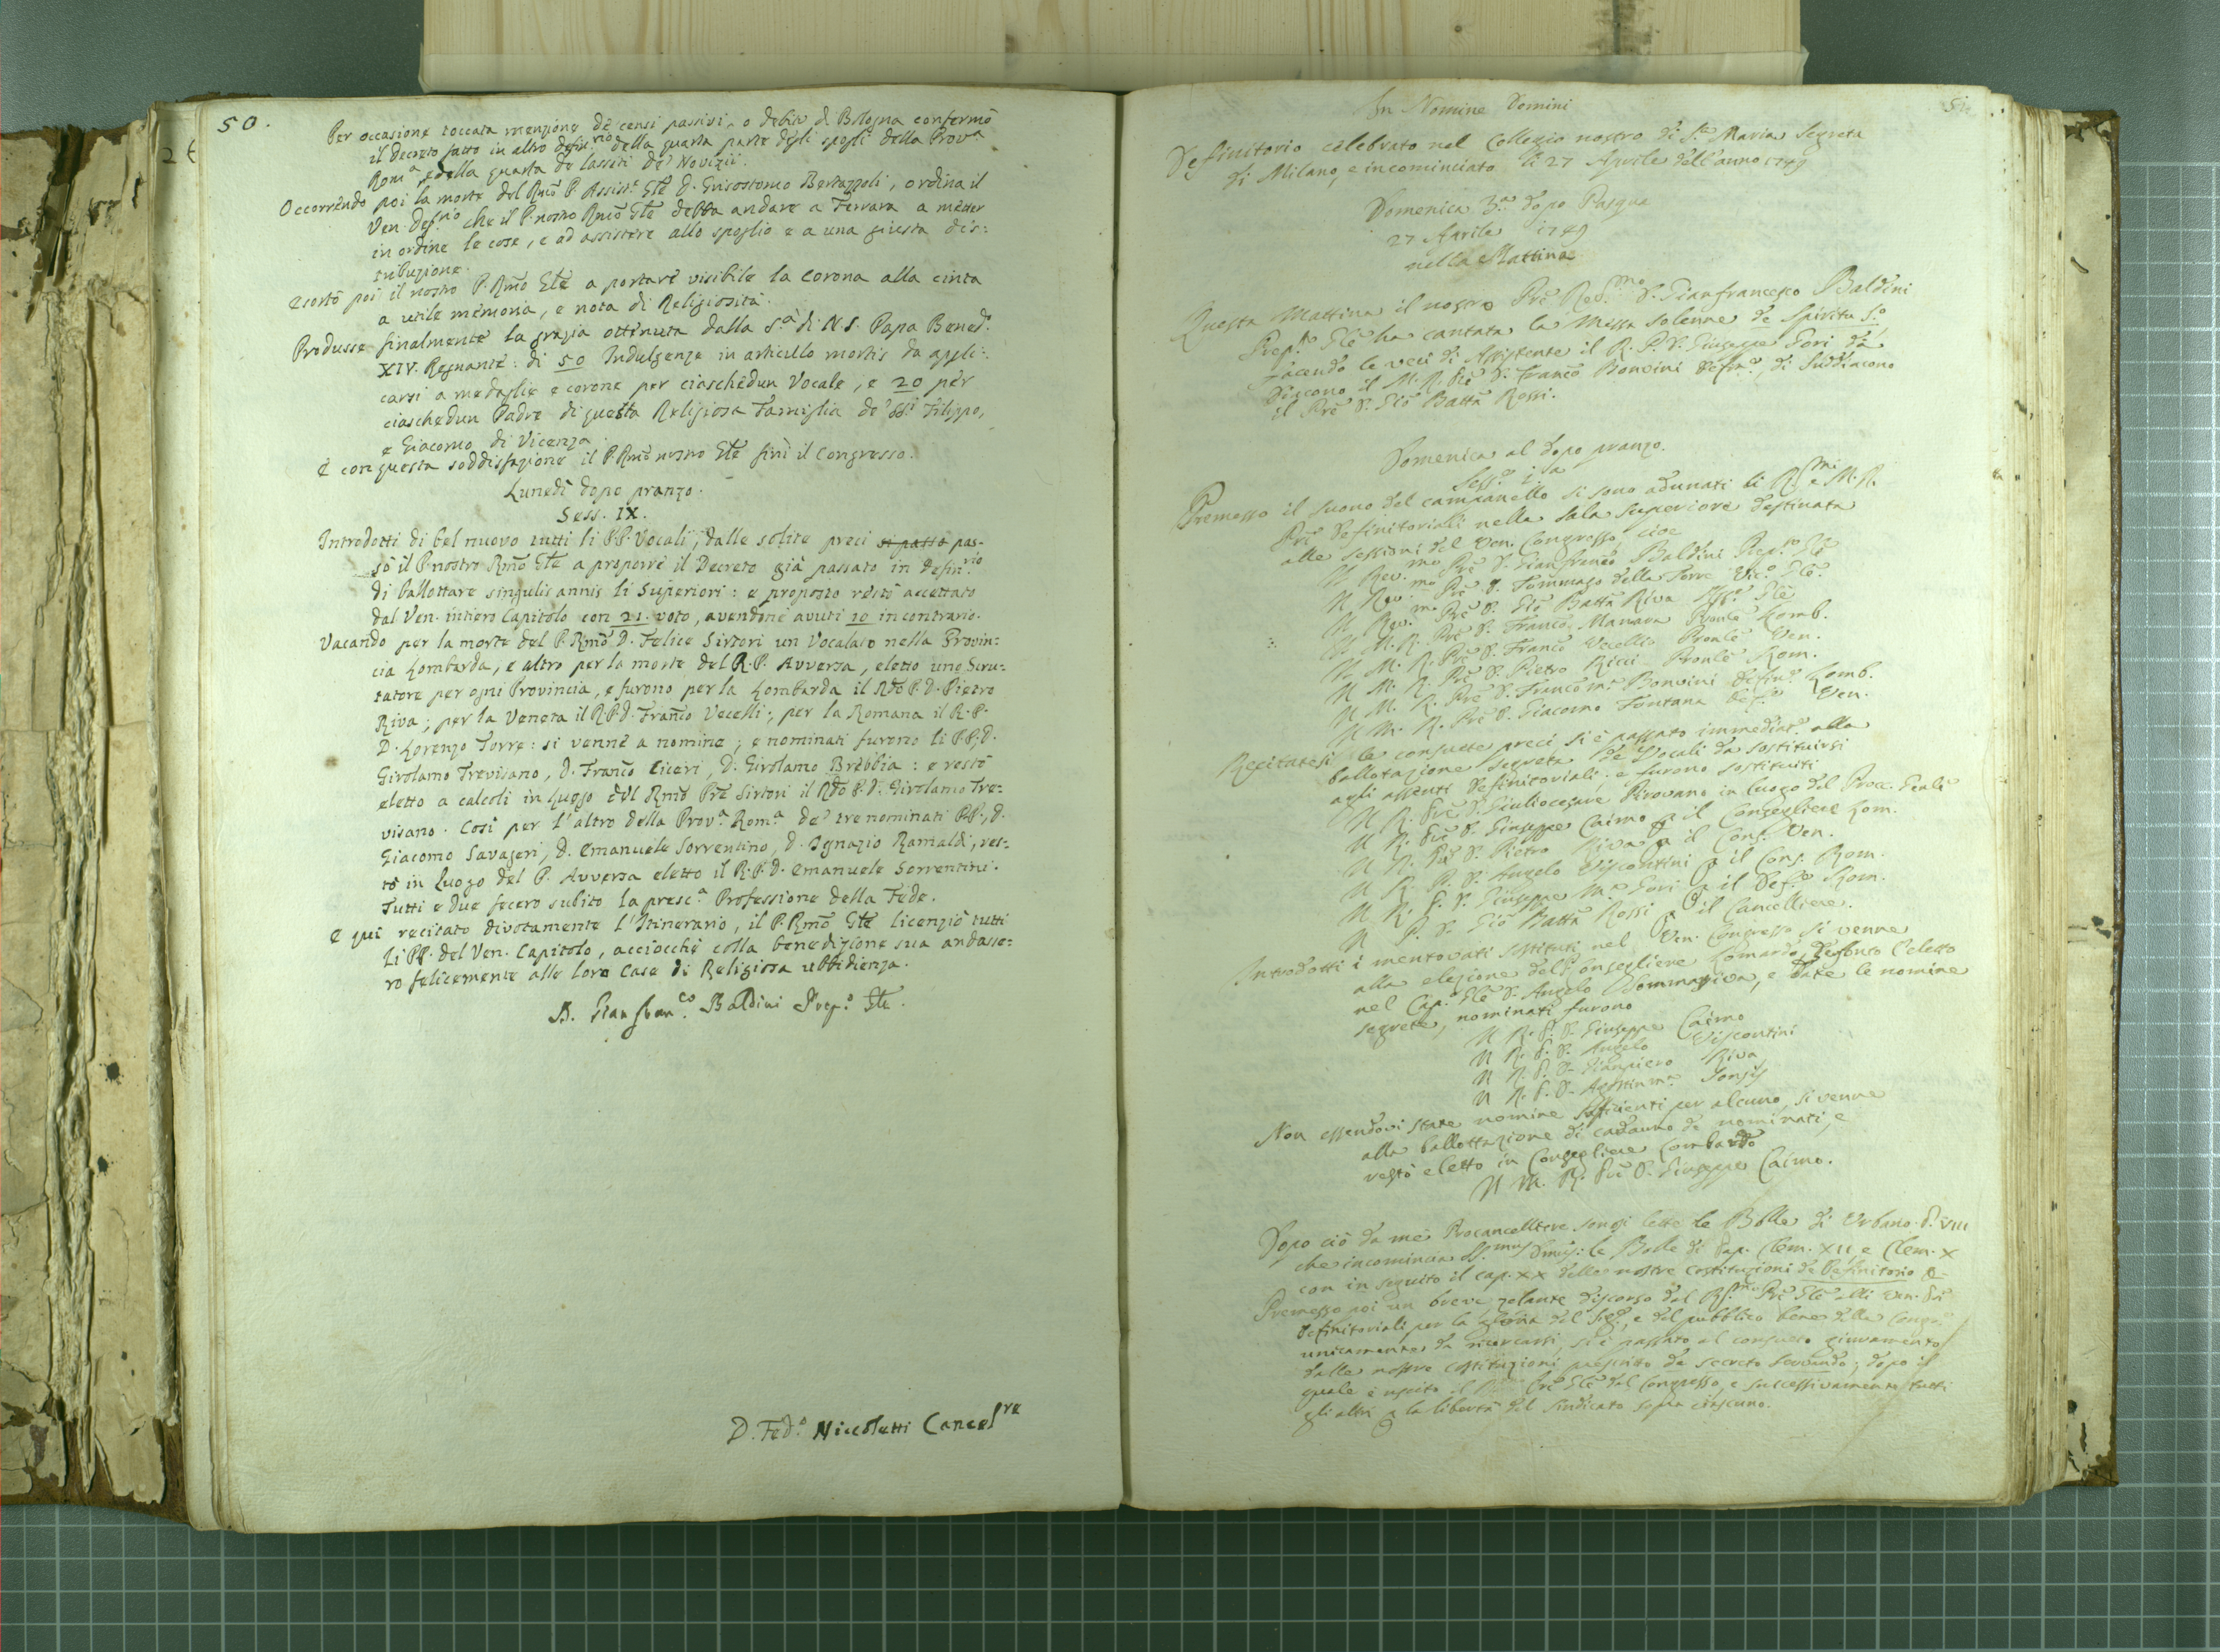 50.
Per occasione toccata menzione de' censi passivi, o debiti di Bologna confermò
il decreto fatto in altro defin.rio della quarta parte degli spogli della Prov.a
Rom.a, e della quarta de lasciti de' Novizii.
Occorrendo poi la morte del Rmo P. Assist.e Gle D. Grisostomo Bertazzoli, ordina il
Ven. Def.rio che il P. nostro Rmo Gle debba andare a Ferrara a metter
in ordine le cose, e ad assistere allo spoglio e a una giusta dis:
tribuzione.
Esortò poi il nostro P. Rmo Gle a portare visibile la corona alla cinta
a utile memoria, e nota di Religiosità.
Produsse finalmente la grazia ottenuta dalla S.a di N.S. Papa Bened.o
XIV. Regnante: di 50 Indulgenze in articulo mortis da appli:
carsi a medaglie e corone per ciaschedun Vocale, e 20 per
ciaschedun Padre di questa Religiosa Famiglia de' SSi Filippo,
e Giacomo di Vicenza.
E con questa soddisfazione il P. Rmo nostro Gle finì il Congresso.
Lunedì dopo pranzo.
Sess. IX.
Introdotti di bel nuovo tutti li PP. Vocali, dalle solite preci si passò pas-
sò il P. nostro Rmo Gle a proporre il Decreto già passato in defin.rio
di ballottare singulis annis li Superiori: e proposto restò accettato
dal Ven. intiero Capitolo con 21. voto, avendone avuti 10 in contrario.
Vacando per la morte del P. Rmo D. Felice Sirtori un Vocalato nella Provin:
cia Lombarda, e altro per la morte del R.P. Avversa, eletto uno Scru-
tatore per ogni Provincia, e furono per la Lombarda il Rdo P. D. Pietro
Riva; per la Veneta il R.P.D. Franco Vecelli; per la Romana il R.P.
D. Lorenzo Torre: si venne a nomina; e nominati furono li PP. D.
Girolamo Trevisano, D. Franco Ciceri, D. Girolamo Brebbia: e restò
eletto a calcoli in luogo del Rmo Pre Sirtori il Rdo P.D. Girolamo Tre=
visano. Così per l'altro della Prov.a Rom.a de' tre nominati PP., D.
Giacomo Savageri, D. Emanuele Sorrentino, D. Ignazio Ramaldi, res-
tò in luogo del P. Avversa eletto il R.P.D. Emanuele Sorrentini.
Tutti e due fecero subito la presc.a Professione della Fede.
E qui recitato divotamente l'Itinerario, il P. Rmo Gle licenziò tutti
li PP. del Ven. Capitolo, acciocchè colla benedizione sua andasse:
ro felicemente alle loro Case di Religiosa ubbidienza.
D. Gianfran.co Baldini Prep.o Gle.
D. Fed.o Niccoletti Cancel.re
In Nomine Domini
Definitorio celebrato nel Collegio nostro di S.ta Maria Segreta
di Milano, e incominciato li 27 Aprile dell'anno 1749
Domenica 3.a dopo Pasqua
27 Aprile 1749
nella Mattina
Questa Mattina il nostro Pre Rev.mo D. Gianfrancesco Baldini
Prep.to Gle ha cantata la Messa solenne de Spiritu S.o,
facendo le veci di Assistente il R.P.D. Giuseppe Gori da
Diacono il M.R. Pre D. Franco Bonvini Defin.e, di Suddiacono
il Pre D. Gio Batta Rossi.
Domenica al dopo pranzo.
Sess.e 1.a
Premesso il suono del campanello si sono adunati li R.mi e M.R.
Pri Definitoriali nella sala superiore destinata
alle sessioni del Ven. Congresso, cioè
Il Rev.mo Pre D. Gianfranco Baldini Prep.to Gle
Il Rev.mo Pre D. Tommaso della Torre Vic.o Gle.
Il Rev.mo Pre D. Gio Batta Riva Ass.e Gle
Il M.R. Pre D. Franco Manara Pronle Lomb.
Il M.R. Pre D. Franco Vecellio Pronle Ven.
Il M.R. Pre D. Pietro Ricci Pronle Rom.
Il M.R. Pre D. Franco m.a Bonvini Defin.e Lomb.
Il M.R. Pre D. Giacomo Fontana Def.e Ven.
Recitatesi le consuete preci, si è passato immediat.e alla
ballotazione segreta de' Vocali da sostituirsi
agli assenti Definitoriali; e furono sostituiti
Il R. Pre D. Giuliocesare Pirovano in luogo del Proc. Gerale
Il R. Pre D. Giuseppe Caimo p il Consegliere Lom.
Il R. Pre D. Pietro Riva p il Cons. Ven.
Il R. P. D. Angelo Viscontini p il Cons. Rom.
Il R. P. D. Giuseppe M.a Gori p il Def.e Rom.
Il P. D. Gio Batta Rossi p il Cancelliere.
Introdotti i mentovati sostituti nel Ven. Congresso si venne
alla elezione del Consegliere Lomardo, deffonto l'eletto
nel Cap.o Gle D. Angelo Sommariva, e date le nomine
segrete, nominati furono
Il R.P.D. Giuseppe Caimo
Il R.P.D. Angelo Viscontini
Il R.P.D. Gianpiero Riva
Il R.P.D. Agostin m.a
Non essendovi state nomine sufficienti per alcuno, si venne
alla ballottazione di cadauno de nominati, e
restò eletto in Consegliere Lombardo
Il M. R. Pre D. Giuseppe Caimo.
Dopo ciò da me Procancelliere sonosi lette le Bolle di Urbano P. VIII
che incomincia SS.mus Dnus: le Bolle di Pap. Clem. XII, e Clem. X
con in seguito il cap. XX delle nostre Costituzioni de Definitorio &
Premesso poi un breve, zelante discorso dal R.mo Pre Gle alli Ven. Pri
Definitoriali per la gloria del Sig.e, e del pubblico bene della Cong.e
unicamente da ricercarsi, si è passato al consueto giuramento
dalle nostre costituzioni prescritto de secreto servando; dopo il
quale è uscito il Pre Gle dal Congresso, e successivamente tutti
gli altri p la libertà del sindicato sopra ciascuno.